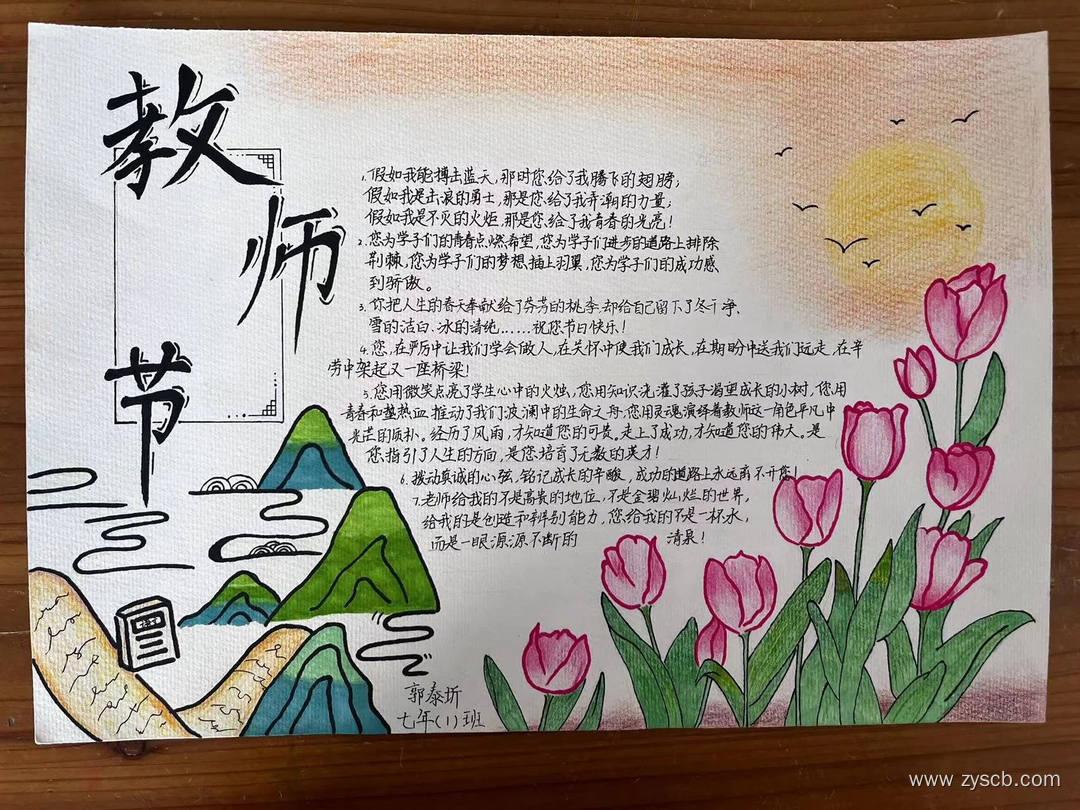 教师节
1.假如我能搏击蓝天，那时您给了我腾飞的翅膀；
假如我是击浪的勇士，那是您给了我弄潮的力量；
假如我是不灭的火炬，那是您给了我青春的光亮！
2.您为学子们的青春点燃希望，您为学子们进步的道路上排除
荆棘，您为学子们的梦想插上羽翼，您为学子们的成功感
到骄傲。
3.你把人生的春天奉献给了芬芳的桃李.却给自己留下了冬干净、
雪的洁白.冰的清纯……祝您节日快乐！
4.您，在严厉中让我们学会做人，在关怀中使我们成长，在期盼中送我们远走，在辛
劳中架起又一座桥梁！
5.您用微笑点亮了学生心中的火烛，您用知识浇灌了孩子渴望成长的小树，您用
青春和热血推动了我们波澜中的生命之舟.您用灵魂演绎着教师这一角色平凡中
光芒的质朴。经历了风雨，才知道您的可贵，走上了成功，才知道您的伟大。是
您指引了人生的方向，是您培育了无数的英才！
6.拨动真诚的心弦，铭记成长的辛酸，成功的道路上永远离不开您！
7.老师给我的不是高贵的地位，不是金碧灿烂的世界，
给我的是创造和辨别能力，您给我的不是一杯水，
而是一眼源源不断的清泉！
语文
郭泰圻
七年(1)班
www.zyscb.com